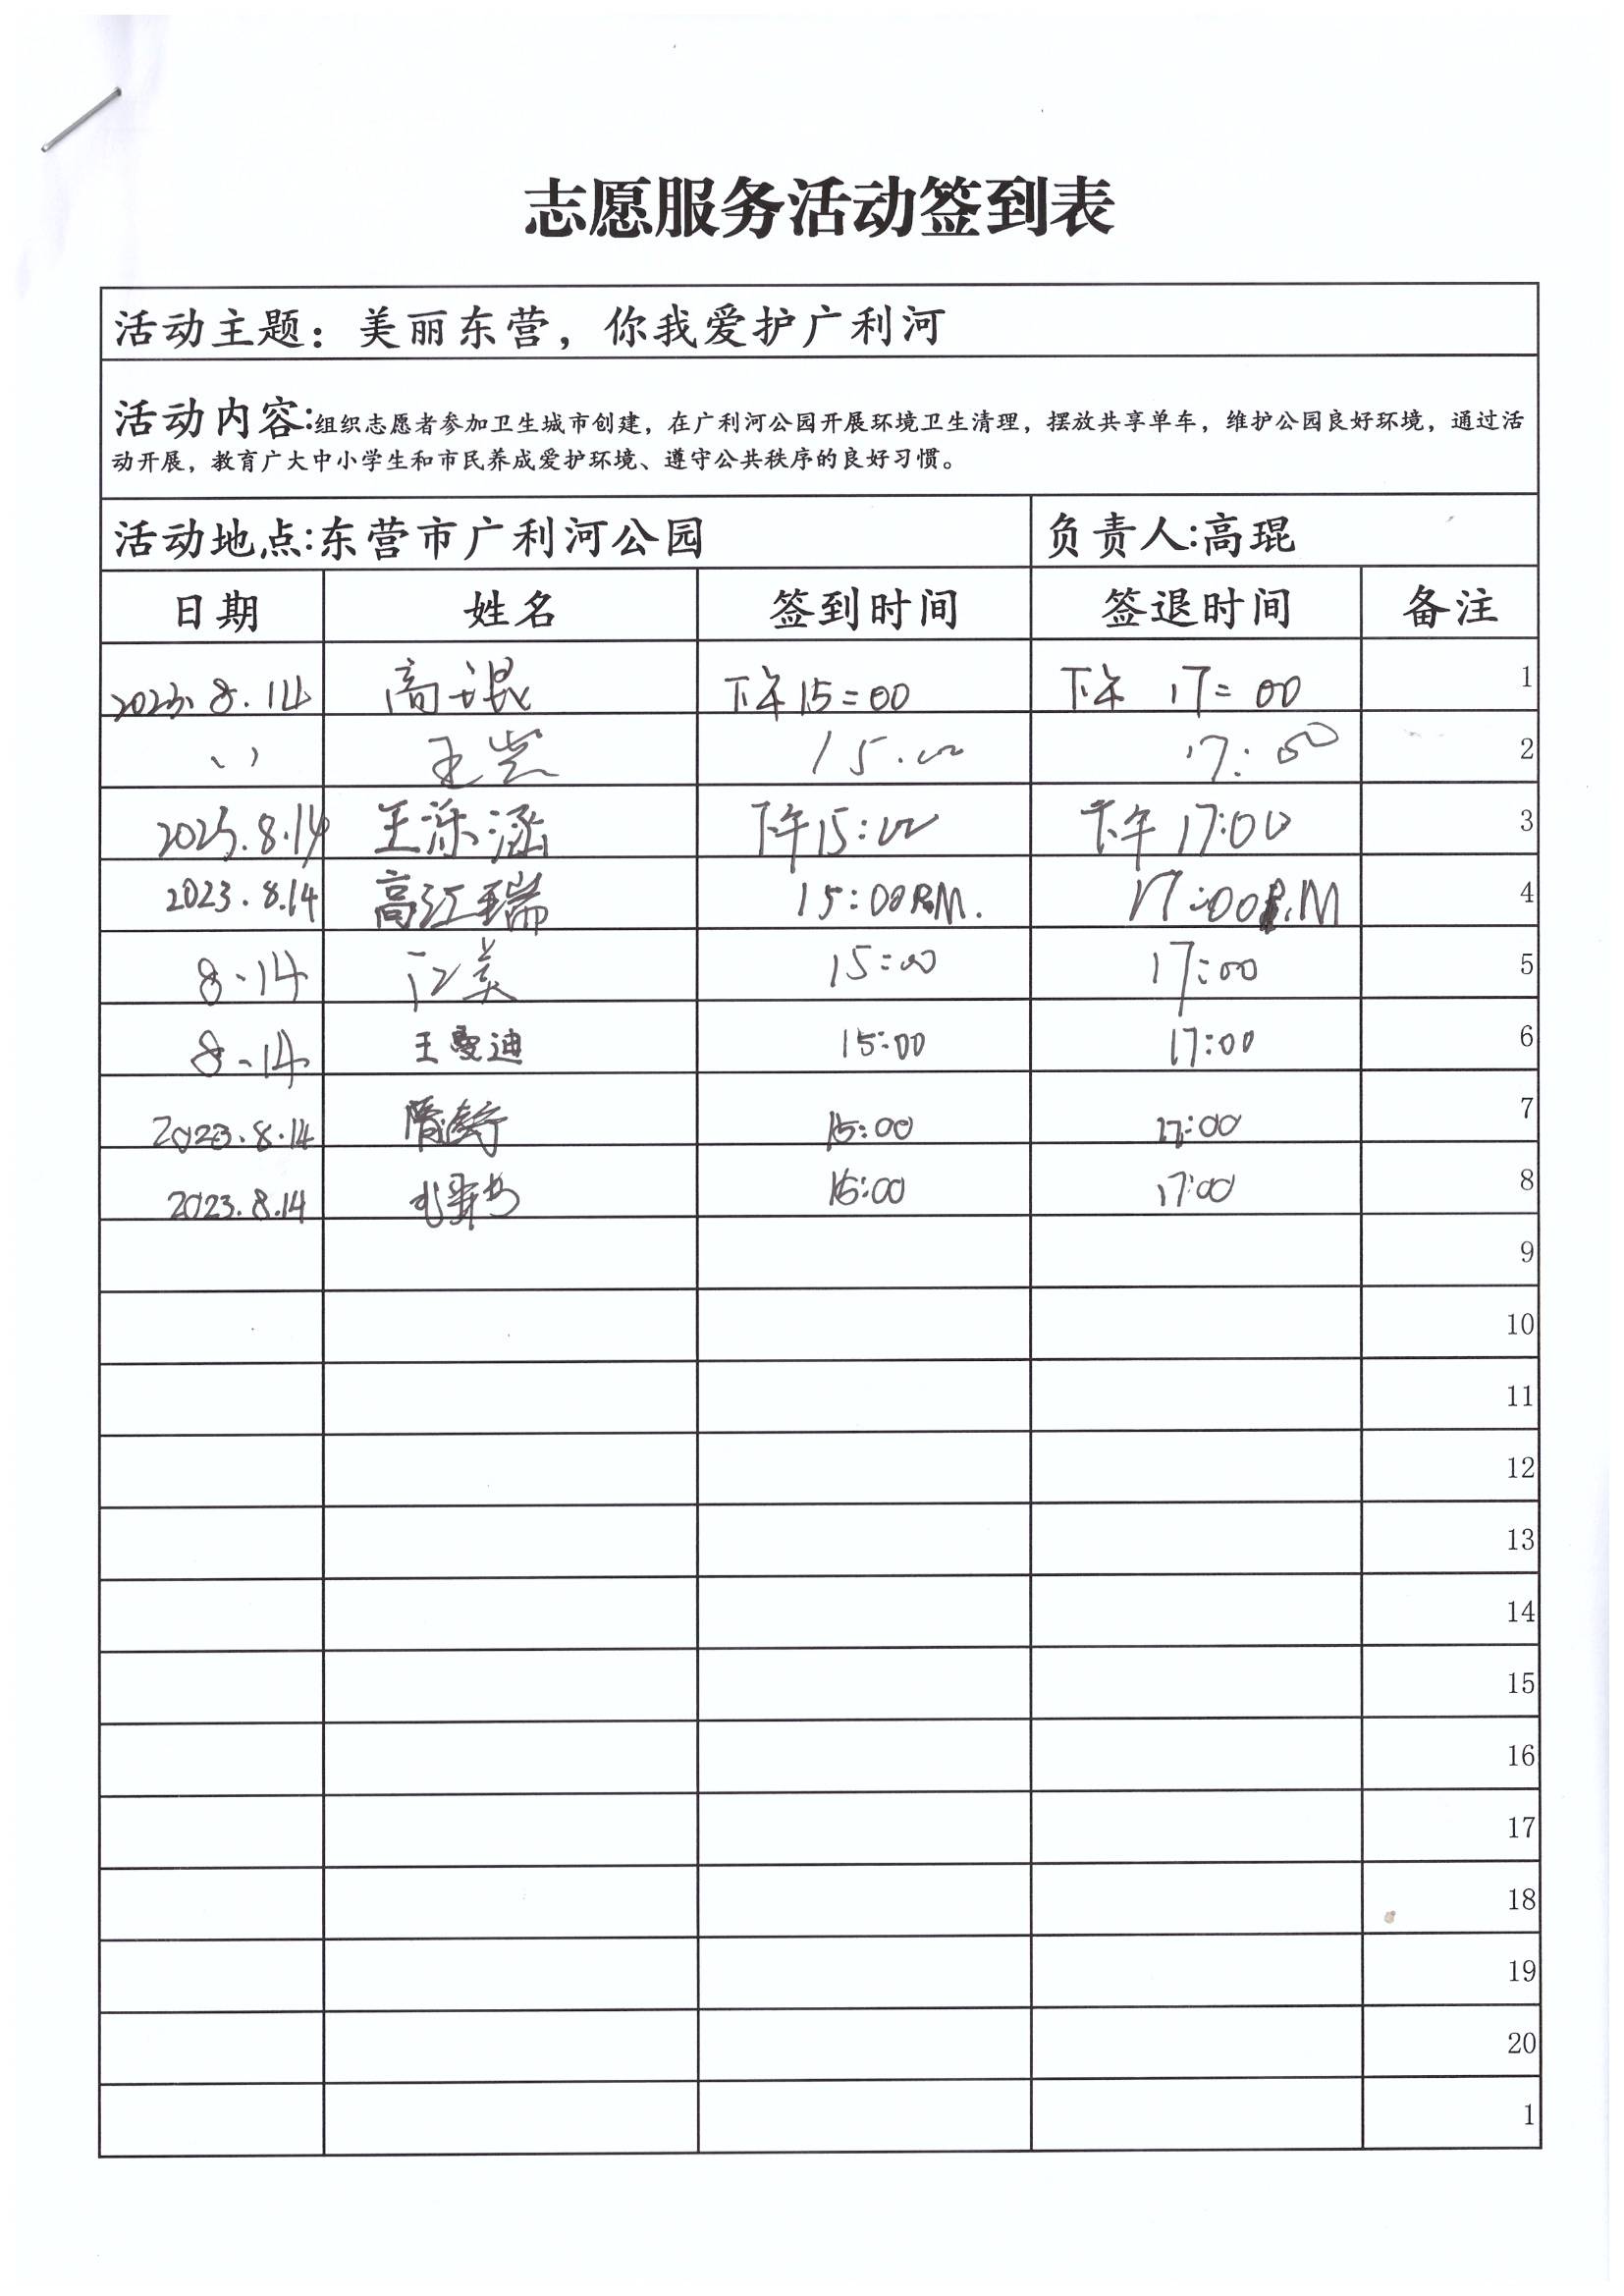 志愿服务活动签到表
活动主题：美丽东营，你我爱护广利河
活动内容:组织志愿者参加卫生城市创建，在广利河公园开展环境卫生清理，摆放共享单车，维护公园良好环境，通过活
动开展，教育广大中小学生和市民养成爱护环境、遵守公共秩序的良好习惯。
活动地点:东营市广利河公园 负责人:高琨
日期 姓名 签到时间 签退时间 备注
2023.8.14 高琨 下午15:00 下午 17:00 1
〃 王岩 15:00 17:00 2
2023.8.14 王泺涵 下午15:00 下午17:00 3
2023.8.14 高江瑞 15:00P.M. 17:00P.M 4
8.14 江美 15:00 17:00 5
8.14 王曼迪 15:00 17:00 6
2023.8.14 15:00 17:00 7
2023.8.14 15:00 17:00 8
9
10
11
12
13
14
15
16
17
18
19
20
1